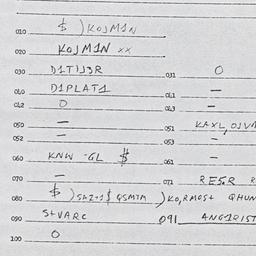 010 $ ) KOJM1N
020 KOJM1N xx
030 D1TIJ3R 031 0
040 D1PLAT1 041 —
042 0 043 —
050 — 051 KAXL,OJV
052 — 053 —
060 KNW -GL $ 061 —
070 — 071 RESR R
080 $ ) $ QSMTM ) KO,RMOST QHUN
090 S+VARC 091 ANG1QIST
100 0